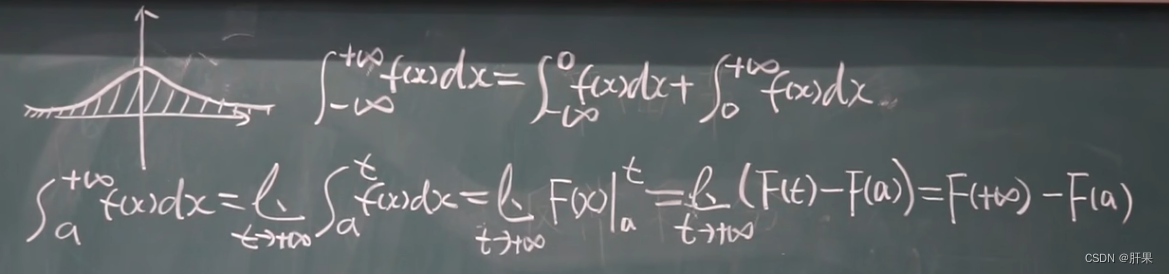 ∫_{-∞}^{+∞} f(x)dx = ∫_{-∞}^{0} f(x)dx + ∫_{0}^{+∞} f(x)dx
∫_{a}^{+∞} f(x)dx = li_{t→+∞} ∫_{a}^{t} f(x)dx = li_{t→+∞} F(x)|_{a}^{t} = li_{t→+∞} (F(t)-F(a)) = F(+∞) - F(a)
CSDN @肝果